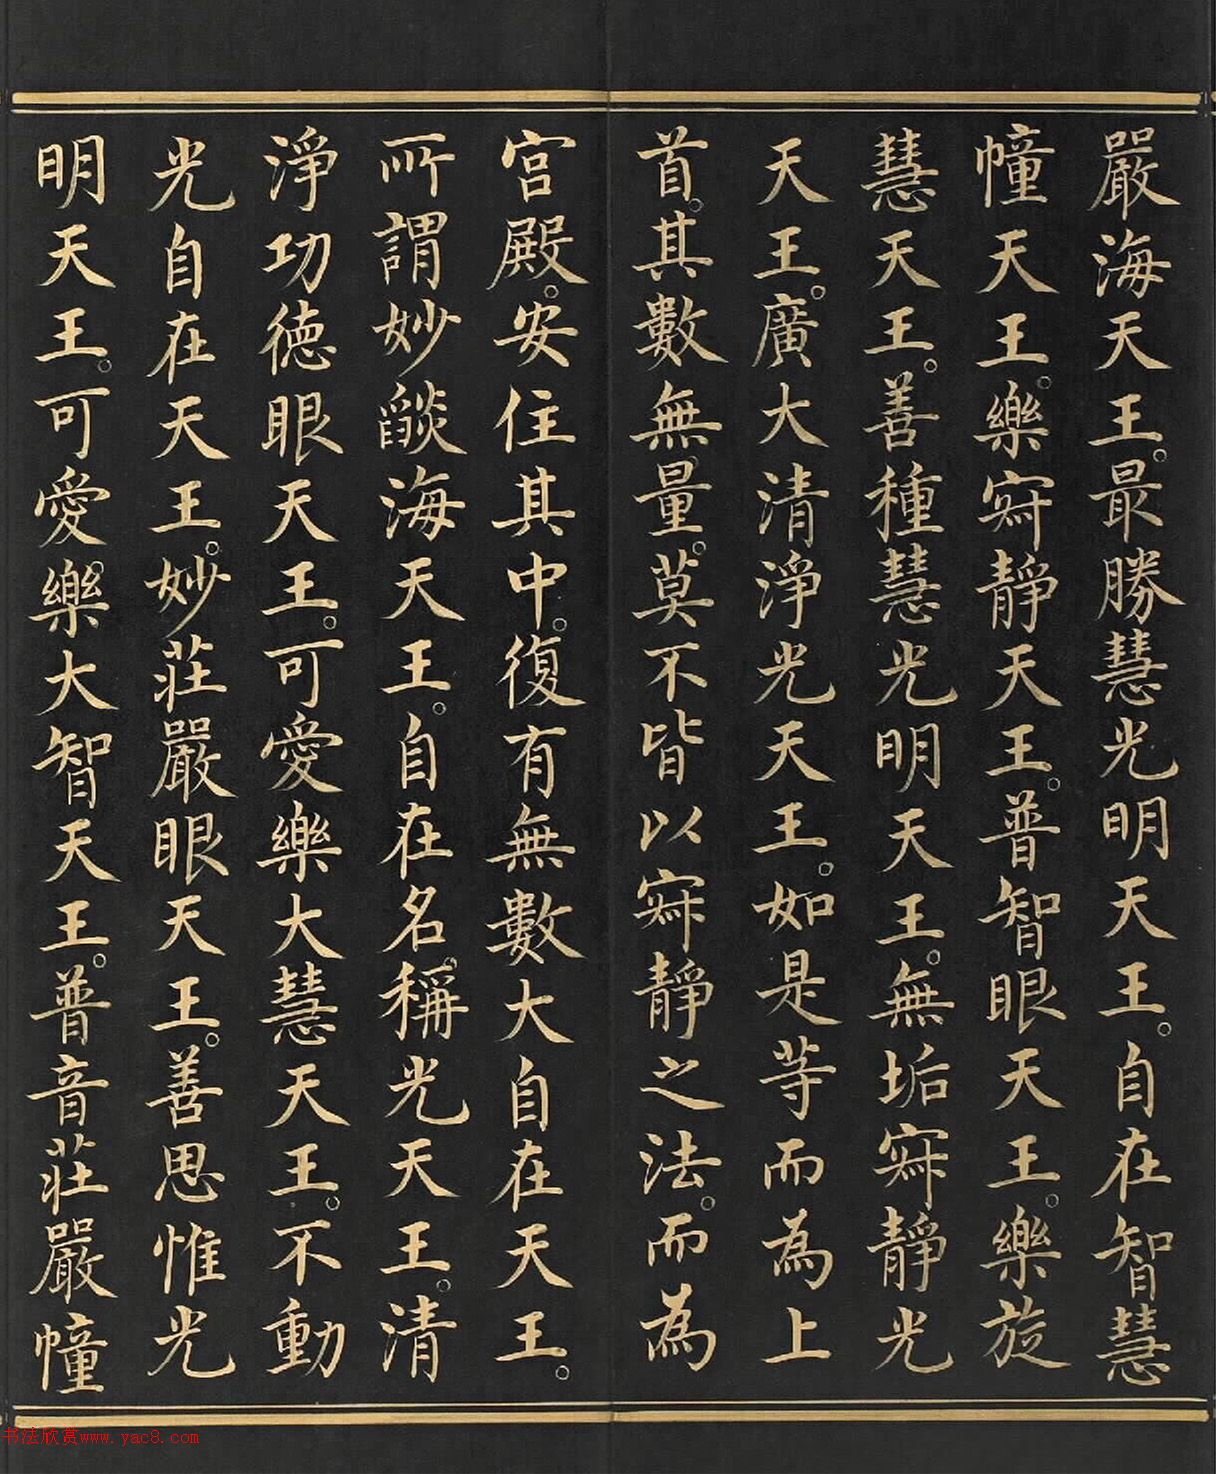 嚴海天王。最勝慧光明天王。自在智慧
幢天王。樂寂靜天王。普智眼天王。樂旋
慧天王。善種慧光明天王。無垢寂靜光
天王。廣大清淨光天王。如是等而為上
首。其數無量。莫不皆以寂靜之法。而為
宮殿。安住其中。復有無數大自在天王。
所謂妙燄海天王。自在名稱光天王。清
淨功德眼天王。可愛樂大慧天王。不動
光自在天王。妙莊嚴眼天王。善思惟光
明天王。可愛樂大智天王。普音莊嚴幢
书法欣赏www.yac8.com